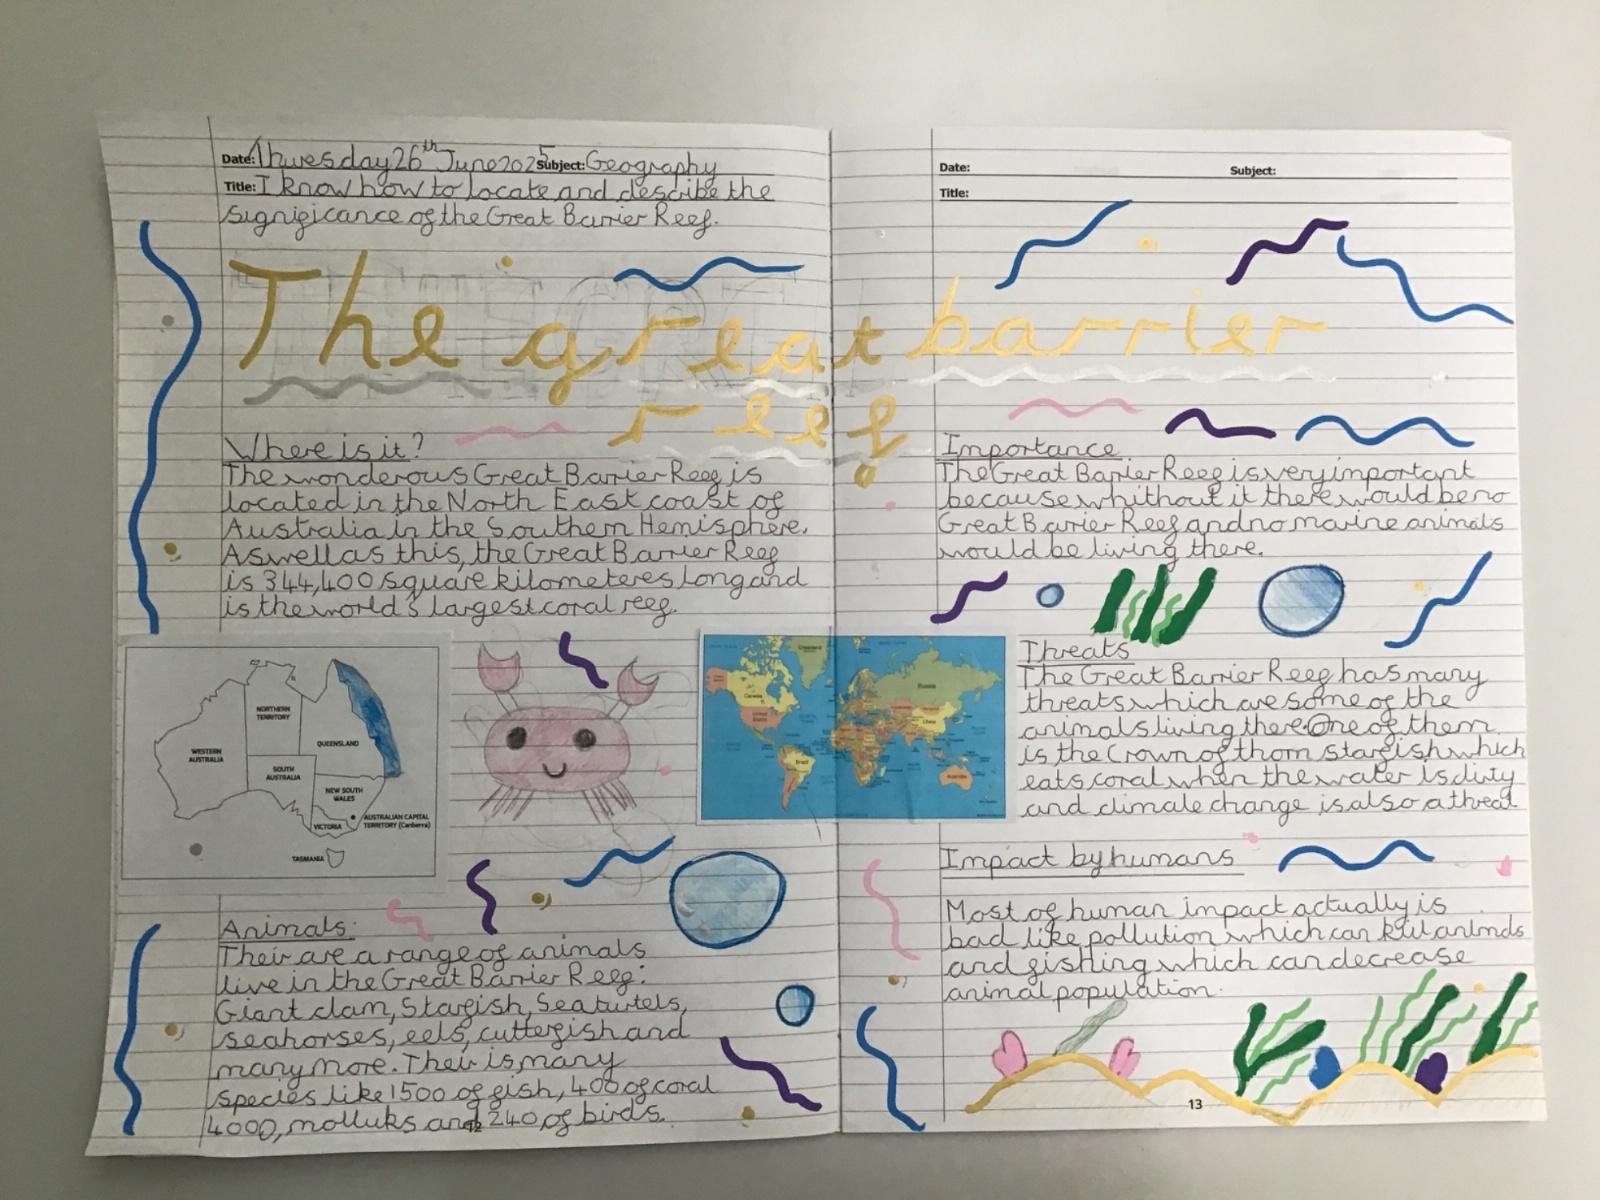 Date: Thuesday 26th June 2025 Subject: Geography
Title: I know how to locate and describe the
significance of the Great Barrier Reef.
Date: Subject:
Title:
The great barrier
reef
Where is it?
The wonderous Great Barrier Reef is
located in the North East coast of
Australia in the Southern Hemisphere.
As well as this, the Great Barrier Reef
is 344,400 square kilometeres long and
is the world's largest coral reef.
WESTERN AUSTRALIA
NORTHERN TERRITORY
QUEENSLAND
SOUTH AUSTRALIA
NEW SOUTH WALES
VICTORIA
AUSTRALIAN CAPITAL TERRITORY (Canberra)
TASMANIA
Greenland
Canada
United States
Brazil
Russia
China
Australia
Animals:
Their are a range of animals
live in the Great Barrier Reef:
Giant clam, Starfish, Sea turtels,
seahorses, eels, cuttergish and
many more. Their is many
species like 1500 of fish, 400 of coral
4000, molluks and 240 of birds.
12
Importance
The Great Barrier Reef is very important
because whithout it there would be no
Great Barrier Reef and no marine animals
would be living there.
Threats
The Great Barrier Reef has many
threats which are some of the
animals living there. One of them
is the Crown of thorn starfish which
eats coral when the water is dirty
and climate change is also a threat
Impact by humans
Most of human impact actually is
bad like pollution which can kill animals
and fishing which can decrease
animal population.
13